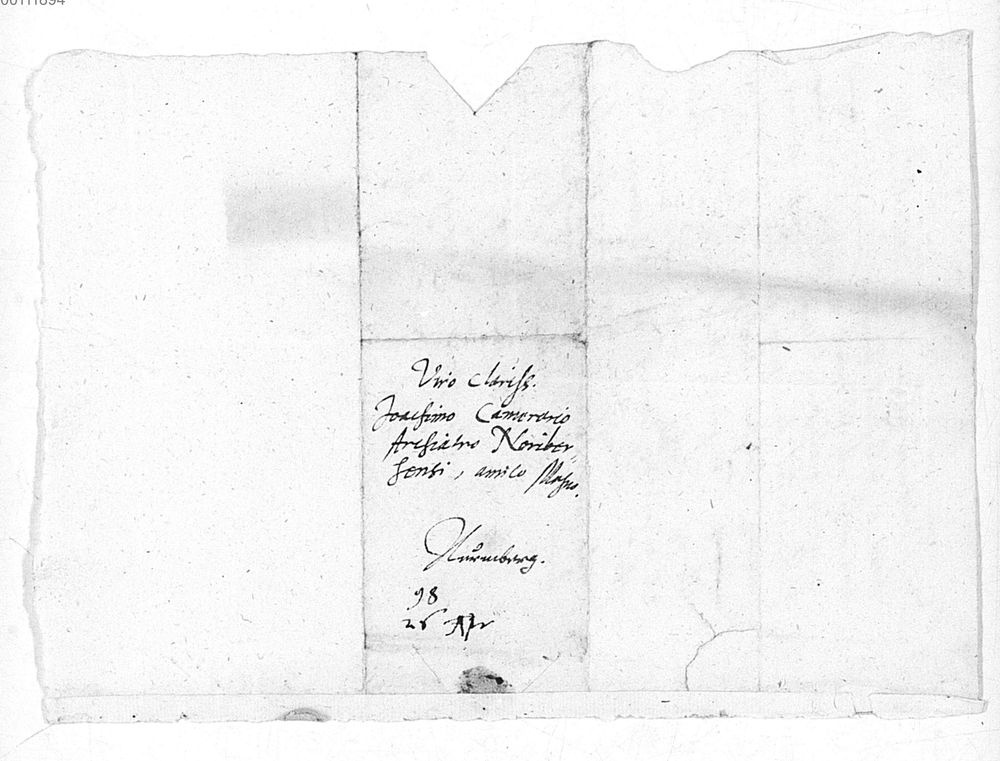 00111894
Viro clariss.
Joachimo Camerario
Archiatro Noriber
gensi, amico
Nurmberg.
98
26 Apr